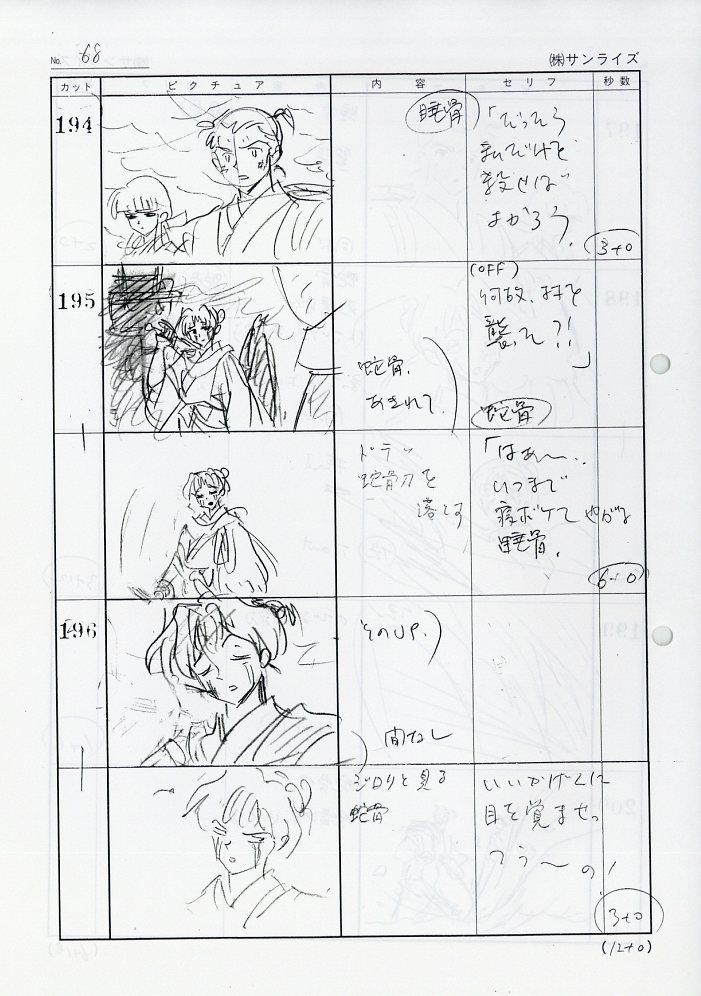 No. 68
(株)サンライズ
カット ピクチュア 内容 セリフ 秒数
194
睡骨
「どうそう
殺せば
よかろう
3+0
195
(OFF)
何故、村を
襲った?!
」
蛇骨、
あきれて、
蛇骨
蛇骨刀を
落とす
「はぁ〜‥
いつまで
寝ボケてやがる
睡骨、
6+0
196
そのUP、
間なし
ジロリと見る
蛇骨
いいかげんに
目を覚ませっ
つう〜の!
3+0
(12+0)